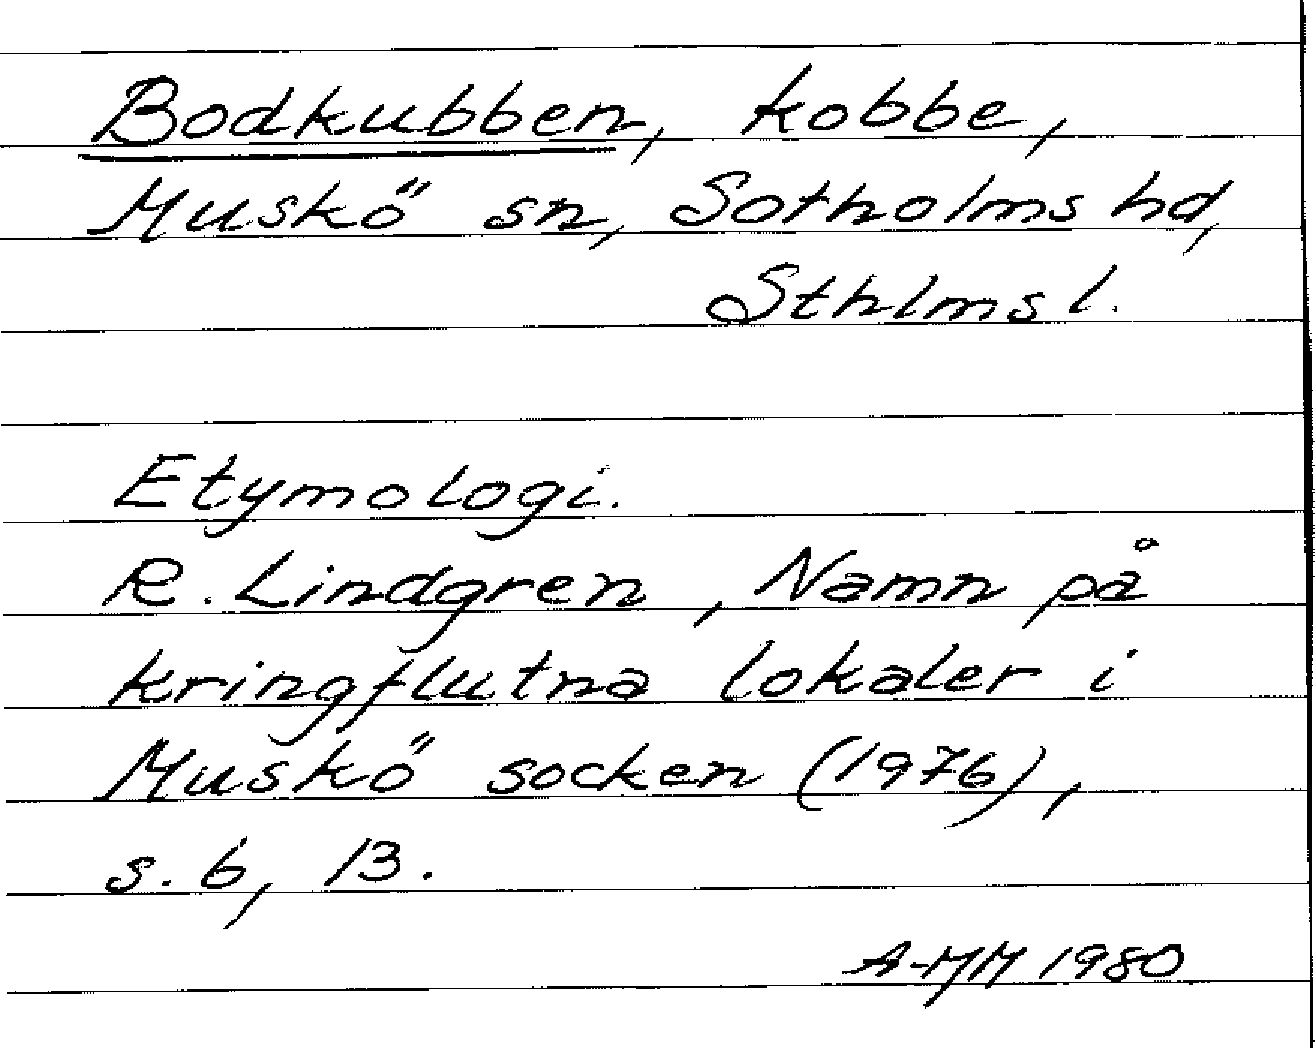 Bodkubben, kobbe,
Muskö sn, Sotholms hd,
Sthlms l.
Etymologi.
R. Lindgren, Namn på
kringflutna lokaler i
Muskö socken (1976),
s. 6, 13.
A-MM 1980